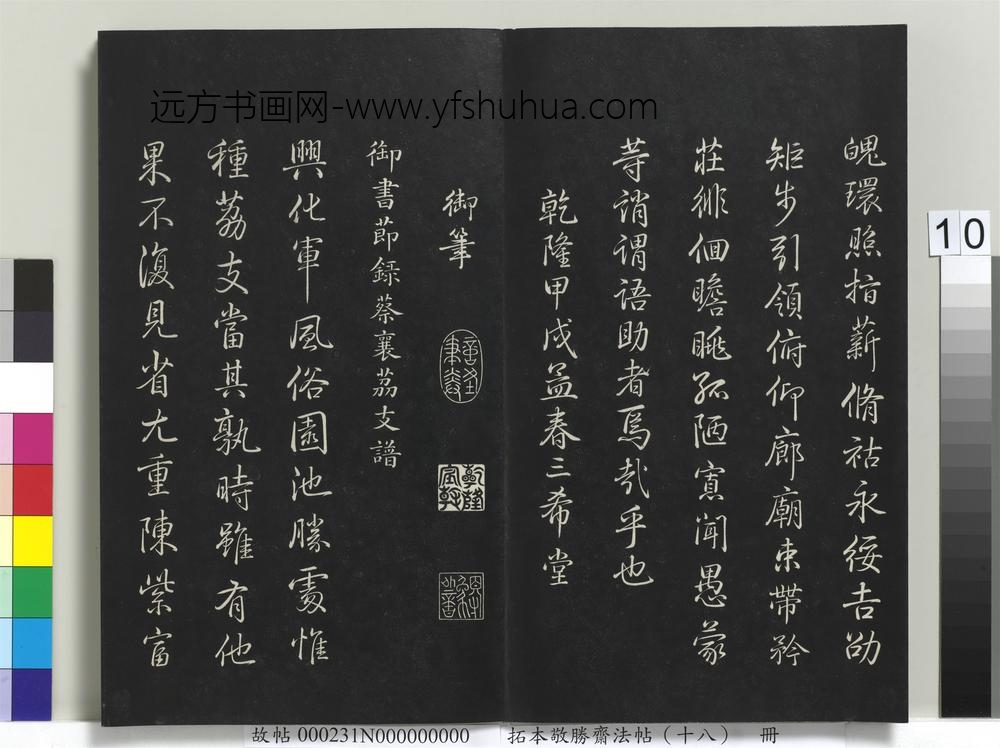 远方书画网-www.yfshuhua.com
魄環照指薪脩祜永綏吉劭
矩步引領俯仰廊廟束帶矜
莊徘徊瞻眺孤陋寡聞愚蒙
等誚謂語助者焉哉乎也
乾隆甲戌孟春三希堂
御筆
乾隆宸翰
御書節錄蔡襄荔支譜
興化軍風俗園池勝處惟
種荔支當其孰時雖有他
果不復見省尤重陳紫富
10
故帖 000231N000000000
拓本敬勝齋法帖（十八） 冊